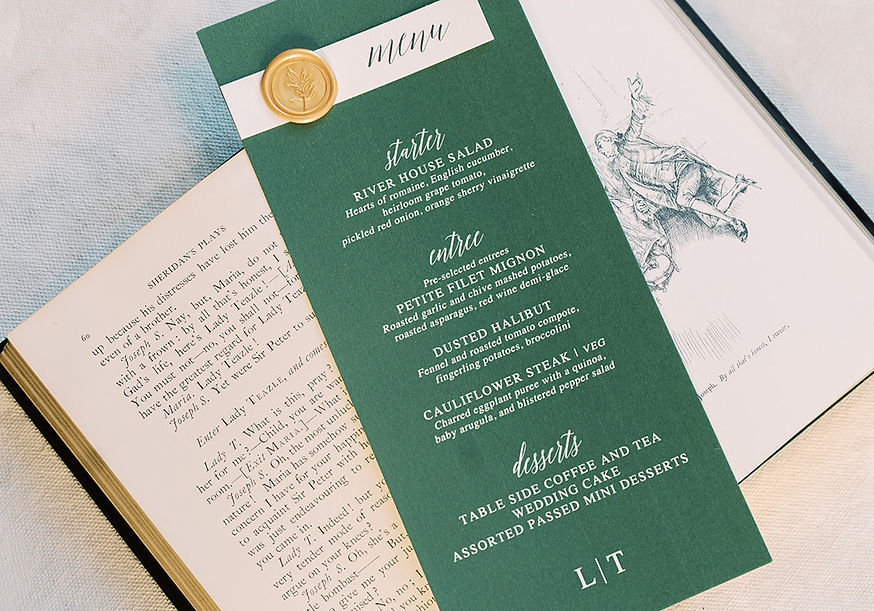 menu
starter
RIVER HOUSE SALAD
Hearts of romaine, English cucumber,
heirloom grape tomato,
pickled red onion, orange sherry vinaigrette
entree
Pre-selected entrees
PETITE FILET MIGNON
Roasted garlic and chive mashed potatoes,
roasted asparagus, red wine demi-glace
DUSTED HALIBUT
Fennel and roasted tomato compote,
fingerling potatoes, broccolini
CAULIFLOWER STEAK | VEG
Charred eggplant puree with a quinoa,
baby arugula, and blistered pepper salad
desserts
TABLE SIDE COFFEE AND TEA
WEDDING CAKE
ASSORTED PASSED MINI DESSERTS
L|T
60
SHERIDAN'S PLAYS
up because his distresses have lost him the
even of a brother.
Joseph S. Nay, but, Maria, do not
with a frown: by all that's honest, I s
Gad's life, here's Lady Teazle!—[A
You must not—no, you shall not—fo
have the greatest regard for Lady Teaz
Maria. Lady Teazle!
Joseph S. Yet were Sir Peter to su
Enter LADY TEAZLE, and come
Lady T. What is this, pray?
her for me?—Child, you are wan
room.—[Exit MARIA.]—What
Joseph S. Oh, the most unluc
nature! Maria has somehow
concern I have for your happi
to acquaint Sir Peter with h
was just endeavouring to rea
you came in.
Lady T. Indeed! but yo
very tender mode of reaso
argue on your knees?
Joseph S. Oh, she's a
bombast— But
to give me your
No, no;
oseph. By all that's honest, I swear,